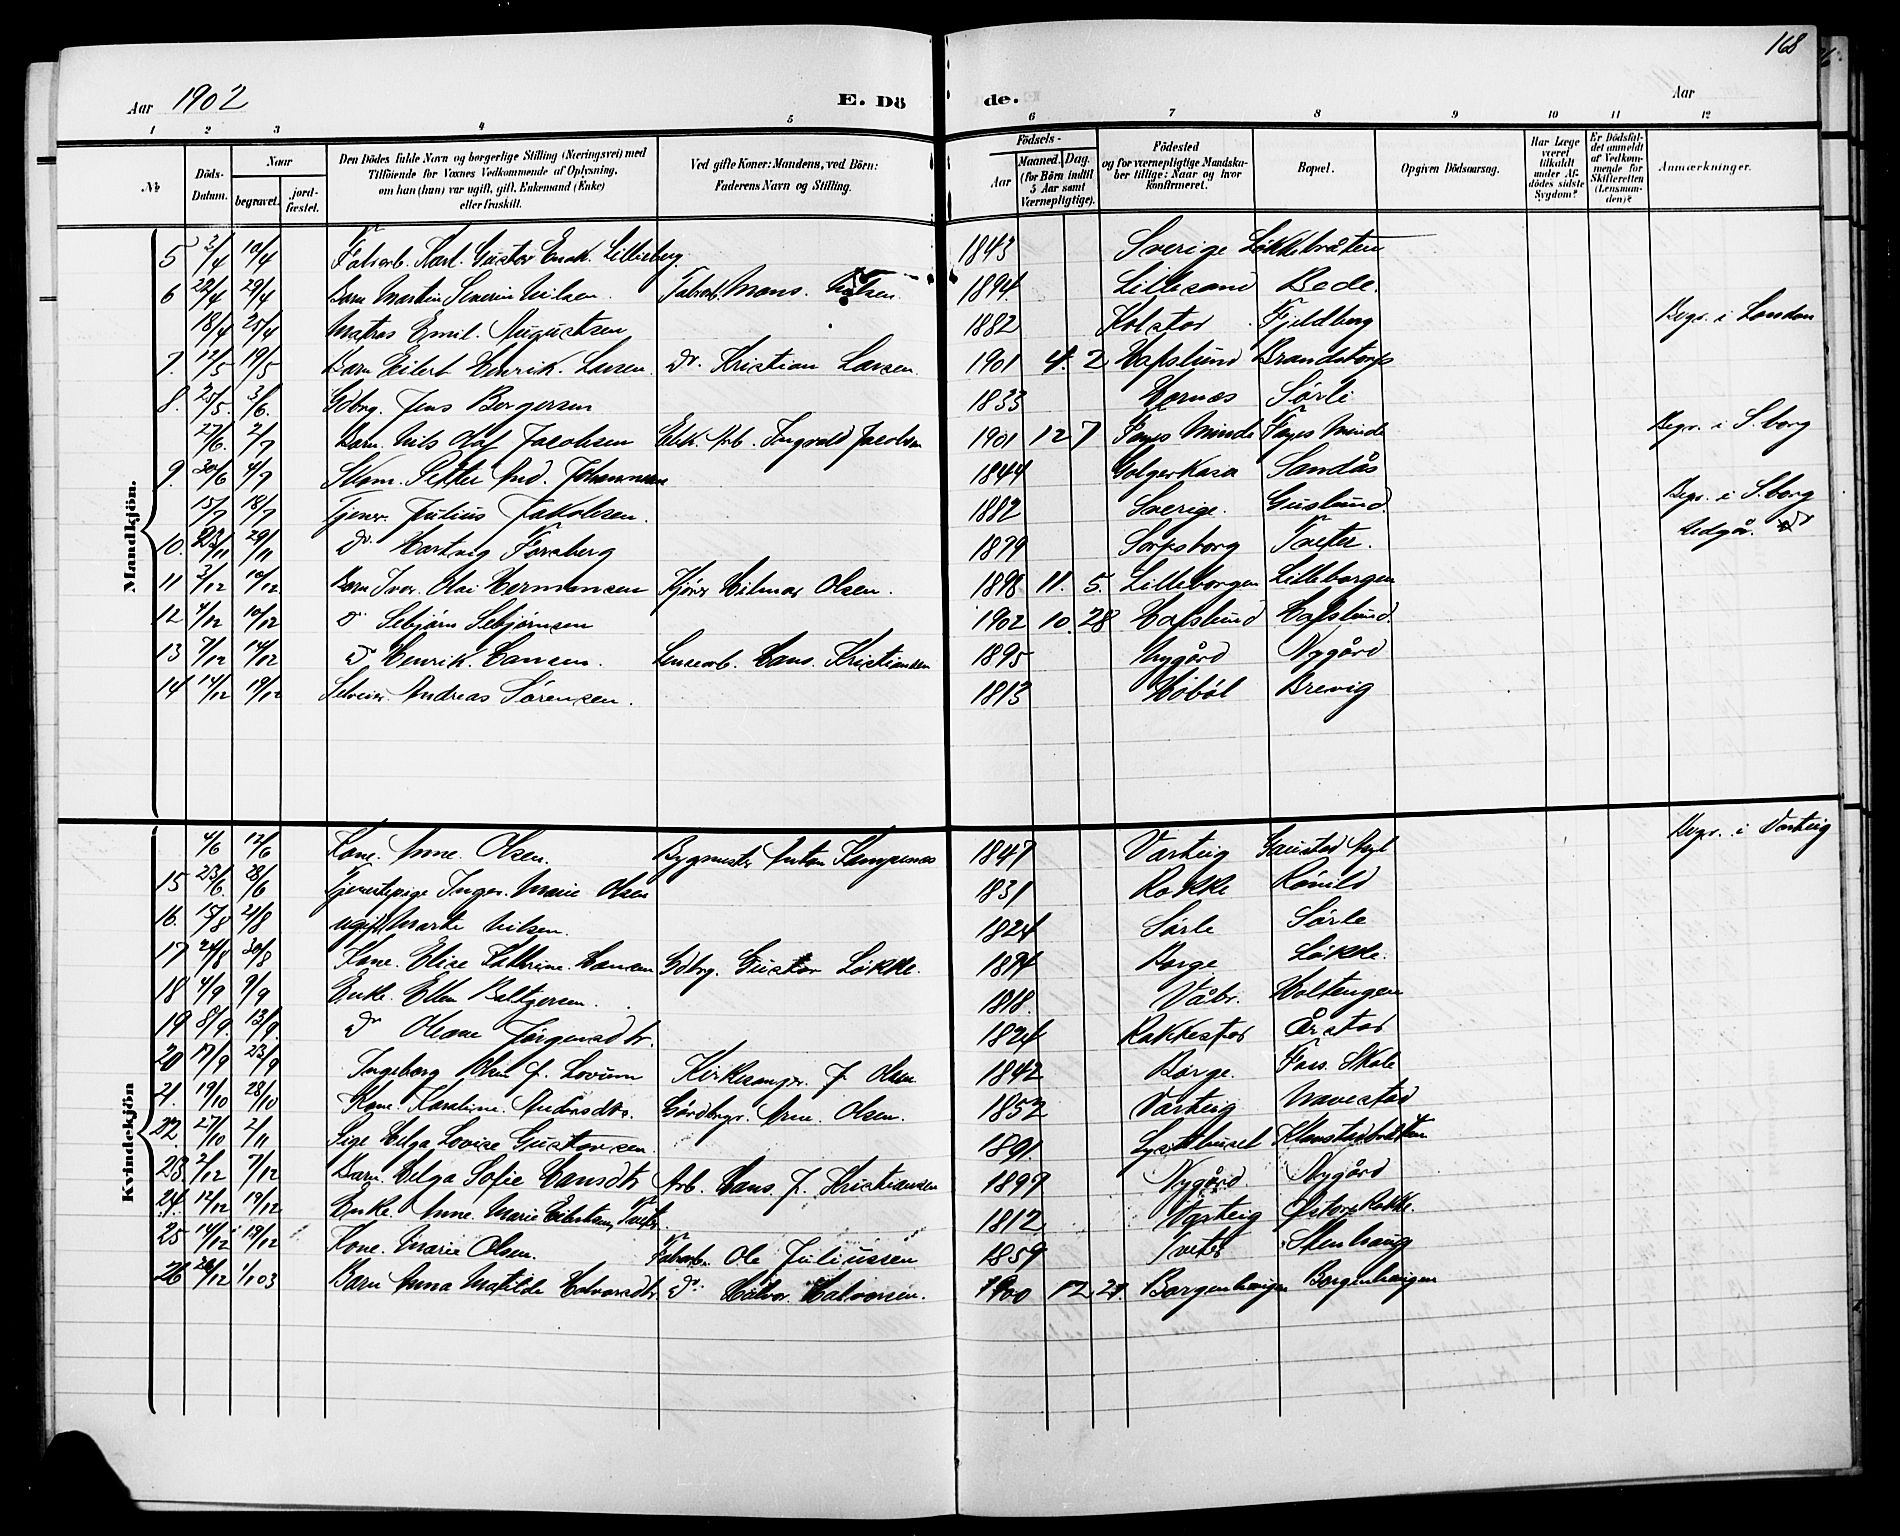 168
Aar 1902 E. Dö de. Aar
1 2 3 4 5 6 7 8 9 10 11 12
№ Döds-Datum. Naar begravet. jordfæstet. Den Dödes fulde Navn og borgerlige Stilling (Næringsvei) med Tilföiende for Voxnes Vedkommende af Oplysning, om han (hun) var ugift, gift, Enkemand (Enke) eller fraskilt. Ved gifte Koner: Mandens, ved Börn: Faderens Navn og Stilling. Födsels- Aar Maaned. Dag. (for Börn indtil 5 Aar samt Værnepligtige). Födested og for værnepligtige Mandskaber tillige: Naar og hvor konfirmeret. Bopæl. Opgiven Dödsaarsag. Har Læge været tilkaldt under Afdödes sidste Sygdom? Er Dödsfaldet anmeldt af Vedkommende for Skifteretten (Lensmanden)? Anmærkninger.
Mandkjön.
5 2/4 10/4 Fabarb. Karl Gustav Enok. Lillieberg. 1843 Sverige Løkkebråten
6 22/4 29/4 Barn Martin Severin Nilsen. Fabrarb. Mons. Nilsen. 1894 Lillesand Bede.
18/4 25/4 Matros Emil. Augustsen 1882 Kolstad Fjeldberg Begr. i London
7. 12/5 19/5 Barn Eilert Henrik. Larsen. do. Kristian Larsen. 1901 4. 2 Hafslund Brandstorp
8. 25/5. 3/6. Gdbrg. Jens Borgersen 1833 Hornes Sørli
27/6. 2/7 Barn. Nils Olaf Jacobsen Elek. Arb. Ingvald Jacobsen 1901 12 7 Fayes Minde Fayes Minde Begr. i S.borg
9. 30/6 4/7 Skom. Petter And. Johannesen 1844 Sandås
15/7 18/7 Tjener. Julius Jakobsen. 1882 Sverige. Guslund. Begr. i S.borg
10. 23/11 29/11 do. Hartvig Forsberg 1879 Sarpsborg Tveter.
11 3/12 10/12 Barn Ivar. Olai Hermansen Kjører Hilmar Olsen. 1898 11. 5. Lilleborgen Lilleborgen
12 4/12 10/12 do. Sebjørn Sebjørnsen 1902 10. 28 Hafslund Hafslund.
13 7/12 14/12 do Henrik. Hansen. Lensearb. Hans. Kristiansen 1895 Nygård Nygård
14 14/12 19/12 Selveier Andreas Sørensen. 1813 Høbøl Brevig
Kvindekjön
4/6 12/6 Kone. Anne. Olsen. Bygmester Anton Kampenes 1847 Varteig Begr. i Varteig
15 23/6. 28/6 Tjenestepige Inger. Marie Olsen 1831 Rokke Rönild
16. 15/8 21/8 ugift Marte Nilsen. 1824 Sørle Sørle
17 24/8 30/8 Kone. Elise Kathrine. Hansen Gdbrg. Gustav Løkke. 1874 Borge Løkke.
18 4/9 9/9 Enke. Ellen Beltgersen. 1818. Våbr. Holtengen
19 8/9. 13/9. do Oleane Jørgensdtr. 1824 Rakkestad Årstad
20 17/9 23/9 Ingeborg Olsen f. Lovum Kirkesanger. J. Olsen 1842 Borge. Foss. Skole
21. 19/10 28/10 Kone. Karoline. Andersdtr. Gårdbrgr. Arne. Olsen. 1852 Varteig Navestad
22. 27/10 2/11 Pige Helga Lovise Gustavsen 1891. Lysthuset Klavestadbråten
23. 2/12 7/12 Barn. Helga Sofie Hansdtr Arb. Hans J. Kristiansen 1897 Nygård. Nygård
24. 12/12 19/12 Enke. Anne. Marie Eilertsen, Tveter. 1812 Varteig Østore Rokke.
25 14/12 19/12 Kone. Marie Olsen. Fabarb. Ole Juliussen 1859 Tveter Stenhaug
26 26/12 1/1 03 Barn Anna Matilde Halvorsdtr do. Halvor. Halvorsen. 1900 12 27. Borgenhaugen Borgenhaugen